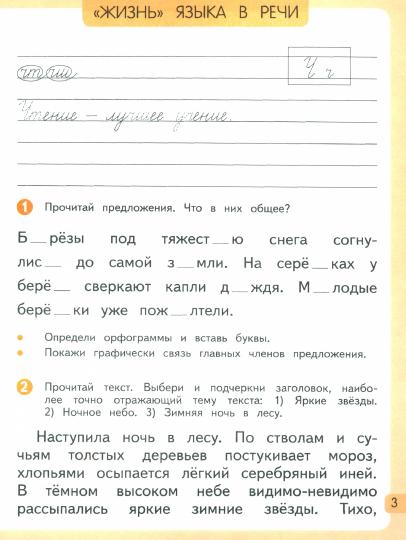 «ЖИЗНЬ» ЯЗЫКА В РЕЧИ
Ч ч
что что
Чтение — лучшее учение.
1 Прочитай предложения. Что в них общее?
Б__рёзы под тяжест__ю снега согну-
лис__ до самой з__мли. На серё__ках у
берё__ сверкают капли д__ждя. М__лодые
берё__ки уже пож__лтели.
• Определи орфограммы и вставь буквы.
• Покажи графически связь главных членов предложения.
2 Прочитай текст. Выбери и подчеркни заголовок, наибо-
лее точно отражающий тему текста: 1) Яркие звёзды.
2) Ночное небо. 3) Зимняя ночь в лесу.
Наступила ночь в лесу. По стволам и су-
чьям толстых деревьев постукивает мороз,
хлопьями осыпается лёгкий серебряный иней.
В тёмном высоком небе видимо-невидимо
рассыпались яркие зимние звёзды. Тихо,
3